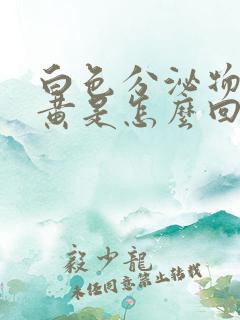 白色分泌物
黄是怎麽回
毅少龍
未经同意禁止转载